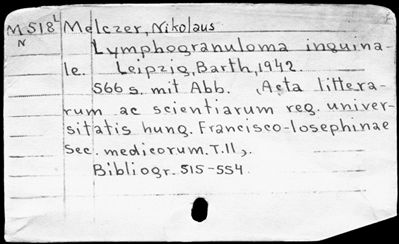 M518L Melczer, Nikolaus
N Lymphogranuloma inguina-
le. Leipzig, Barth, 1942.
566 s. mit Abb. (Acta littera-
rum ac scientiarum reg. univer-
sitatis hung. Francisco-Iosephinae
Sec. medicorum. T.11).
Bibliogr. 515-554.